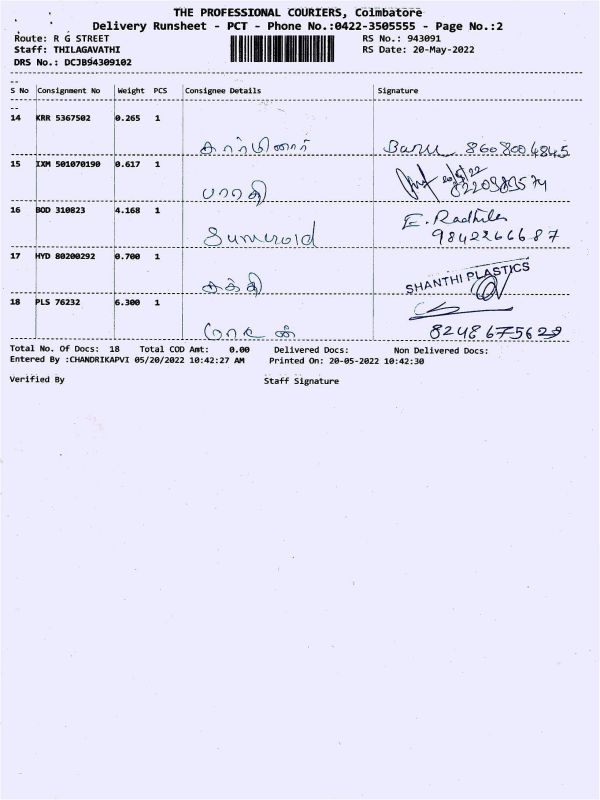 THE PROFESSIONAL COURIERS, Coimbatore
Delivery Runsheet - PCT - Phone No.:0422-3505555 - Page No.:2
Route: R G STREET RS No.: 943091
Staff: THILAGAVATHI RS Date: 20-May-2022
DRS No.: DCJB94309102
S No Consignment No Weight PCS Consignee Details Signature
14 KRR 5367502 0.265 1
Banu 8608004845
15 IXM 501070190 0.617 1
பாரதி 20/5/22
16 BOD 310823 4.168 1 E. Radhika
9842266687
17 HYD 80200292 0.700 1 SHANTHI PLASTICS
சக்தி
18 PLS 76232 6.300 1
மோகன் 8248675629
Total No. Of Docs: 18 Total COD Amt: 0.00 Delivered Docs: Non Delivered Docs:
Entered By :CHANDRIKAPVI 05/20/2022 10:42:27 AM Printed On: 20-05-2022 10:42:30
Verified By Staff Signature